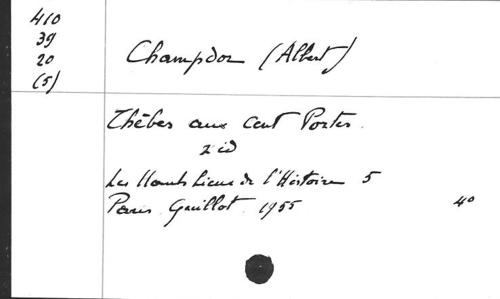 410
39
20
(5)
Champdor (Albert)
Thèbes aux cent Portes.
2 éd
Les Hauts Lieux de l'Histoire 5
Paris Guillot. 1955 4o